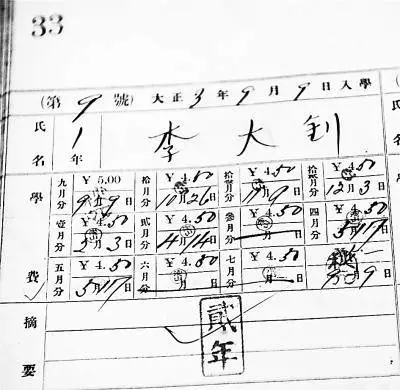 33
(第 9 號) 大正 3 年 9 月 9 日入學
氏名 1年 李大釗
學費
九月分 ¥5.00 9月9日 拾月分 ¥4.50 10月26日 拾壹月分 ¥4.50 11月9日 拾貳月分 ¥4.50 12月3日
壹月分 ¥4.50 月3日 貳月分 ¥4.50 4月14日 參月分 ¥4.50 月日 四月分 ¥4.50 5月17日
五月分 ¥4.50 5月17日 六月分 ¥4.50 月日 七月分 ¥4.50 月日 月9日
摘要
貳年